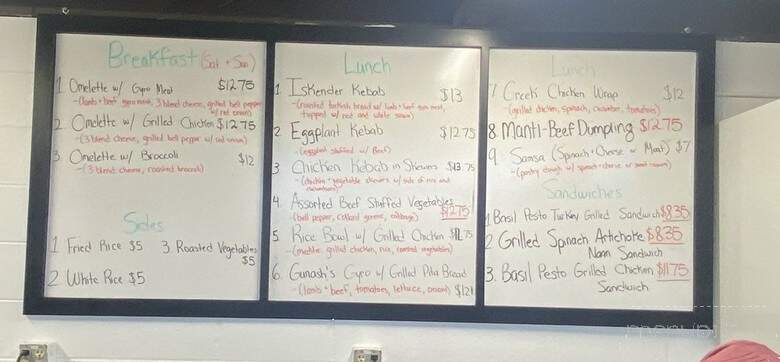 Breakfast (Sat + Sun)
1 Omelette w/ Gyro Meat $12.75
-(lamb + beef gyro meat, 3 blend cheese, grilled bell pepper
w/ red onion)
2 Omelette w/ Grilled Chicken $12.75
-(3 blend cheese, grilled bell pepper w/ red onion)
3 Omelette w/ Broccoli $12
-(3 blend cheese, roasted broccoli)
Sides
1 Fried Rice $5 3 Roasted Vegetables
$5
2 White Rice $5
Lunch
1 Iskender Kebab $13
-(roasted turkish bread w/ lamb + beef gyro meat,
topped w/ red and white sauce)
2 Eggplant Kebab $12.75
-(eggplant stuffed w/ Beef)
3 Chicken Kebab in Skewers $13.75
-(chicken + vegetable skewers w/ side of rice and
4. Assorted Beef Stuffed Vegetables
-(bell pepper, collard greens, cabbage) $12.75
5 Rice Bowl w/ Grilled Chicken $11.75
grilled chicken, rice, roasted vegetables)
6. Gunash's Gyro w/ Grilled Pita Bread
-(lamb + beef, tomatoes, lettuce, onion) $12
Lunch
7 Greek Chicken Wrap $12
-(grilled chicken, spinach, cucumber, tomatoes)
8 Manti-Beef Dumpling $12.75
9. Samsa (Spinach + Cheese or Meat) $7
-(pastry dough w/ spinach + cheese or
Sandwiches
1 Basil Pesto Turkey Grilled Sandwich $8.35
2 Grilled Spinach Artichoke $8.35
Naan Sandwich
3. Basil Pesto Grilled Chicken $11.75
Sandwich